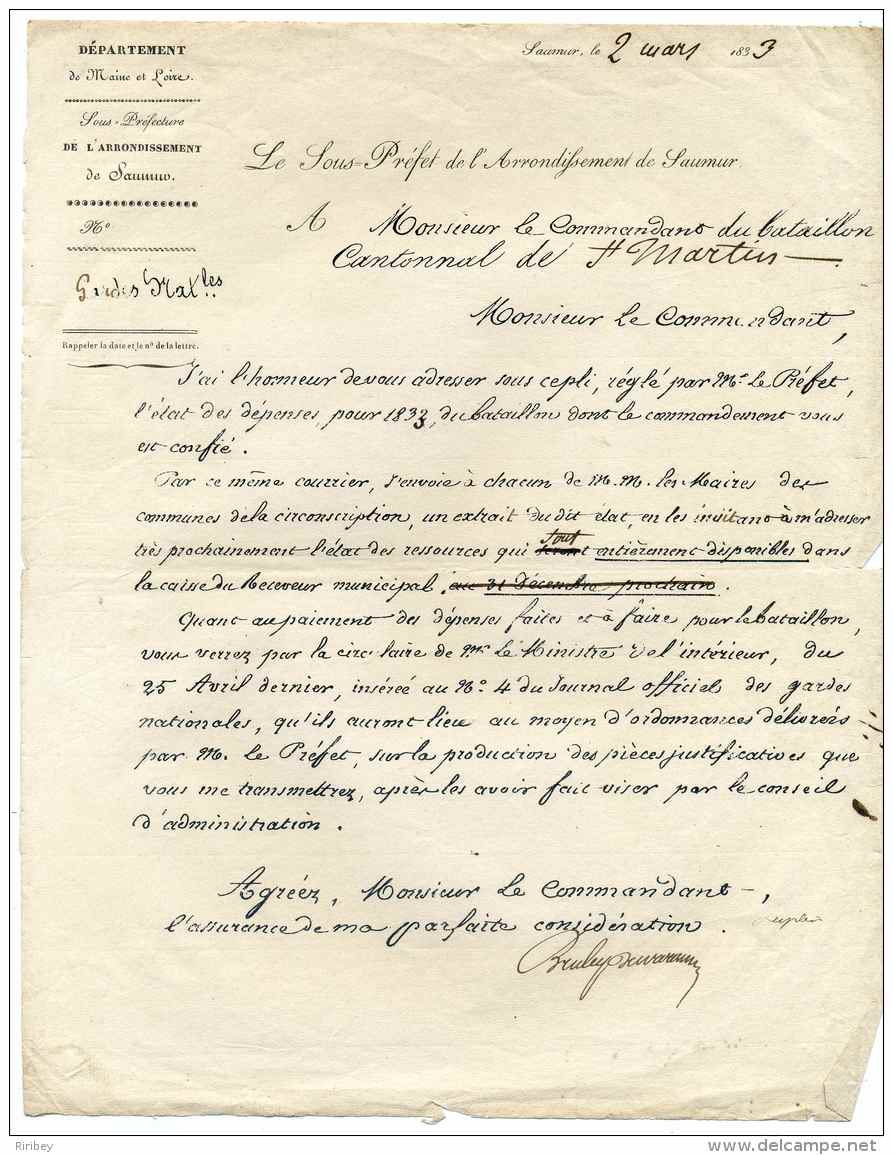 DÉPARTEMENT
de Maine et Loire.
Sous-Préfecture
DE L'ARRONDISSEMENT
de Saumur.
N.o
Gardes Nat.les
Rappeler la date et le n.o de la lettre.
Saumur, le 2 mars 1833
Le Sous-Préfet de l'Arrondissement de Saumur.
A Monsieur le Commandant du bataillon
Cantonnal de St Martin
Monsieur le Commandant,
J'ai l'honneur de vous adresser sous ce pli, réglé par Mr. Le Préfet,
l'état des dépenses, pour 1833, du bataillon dont le commandement vous
est confié.
Par ce même courrier, j'envoie à chacun de M.M. les Maires des
communes de la circonscription, un extrait du dit état, en les invitant à m'adresser
très prochainement l'état des ressources qui sont
seront entièrement disponibles dans
la caisse du Receveur municipal, au 31 Décembre prochain.
Quant au paiement des dépenses faites et à faire pour le bataillon,
vous verrez par la circulaire de Mr. Le Ministre de l'intérieur, du
25 Avril dernier, insérée au N.o 4 du Journal officiel des gardes
nationales, qu'ils auront lieu au moyen d'ordonnances délivrées
par M. Le Préfet, sur la production des pièces justificatives que
vous me transmettrez, après les avoir fait viser par le conseil
d'administration.
Agréez, Monsieur le Commandant,
l'assurance de ma parfaite considération.
Riribey
www.delcampe.net